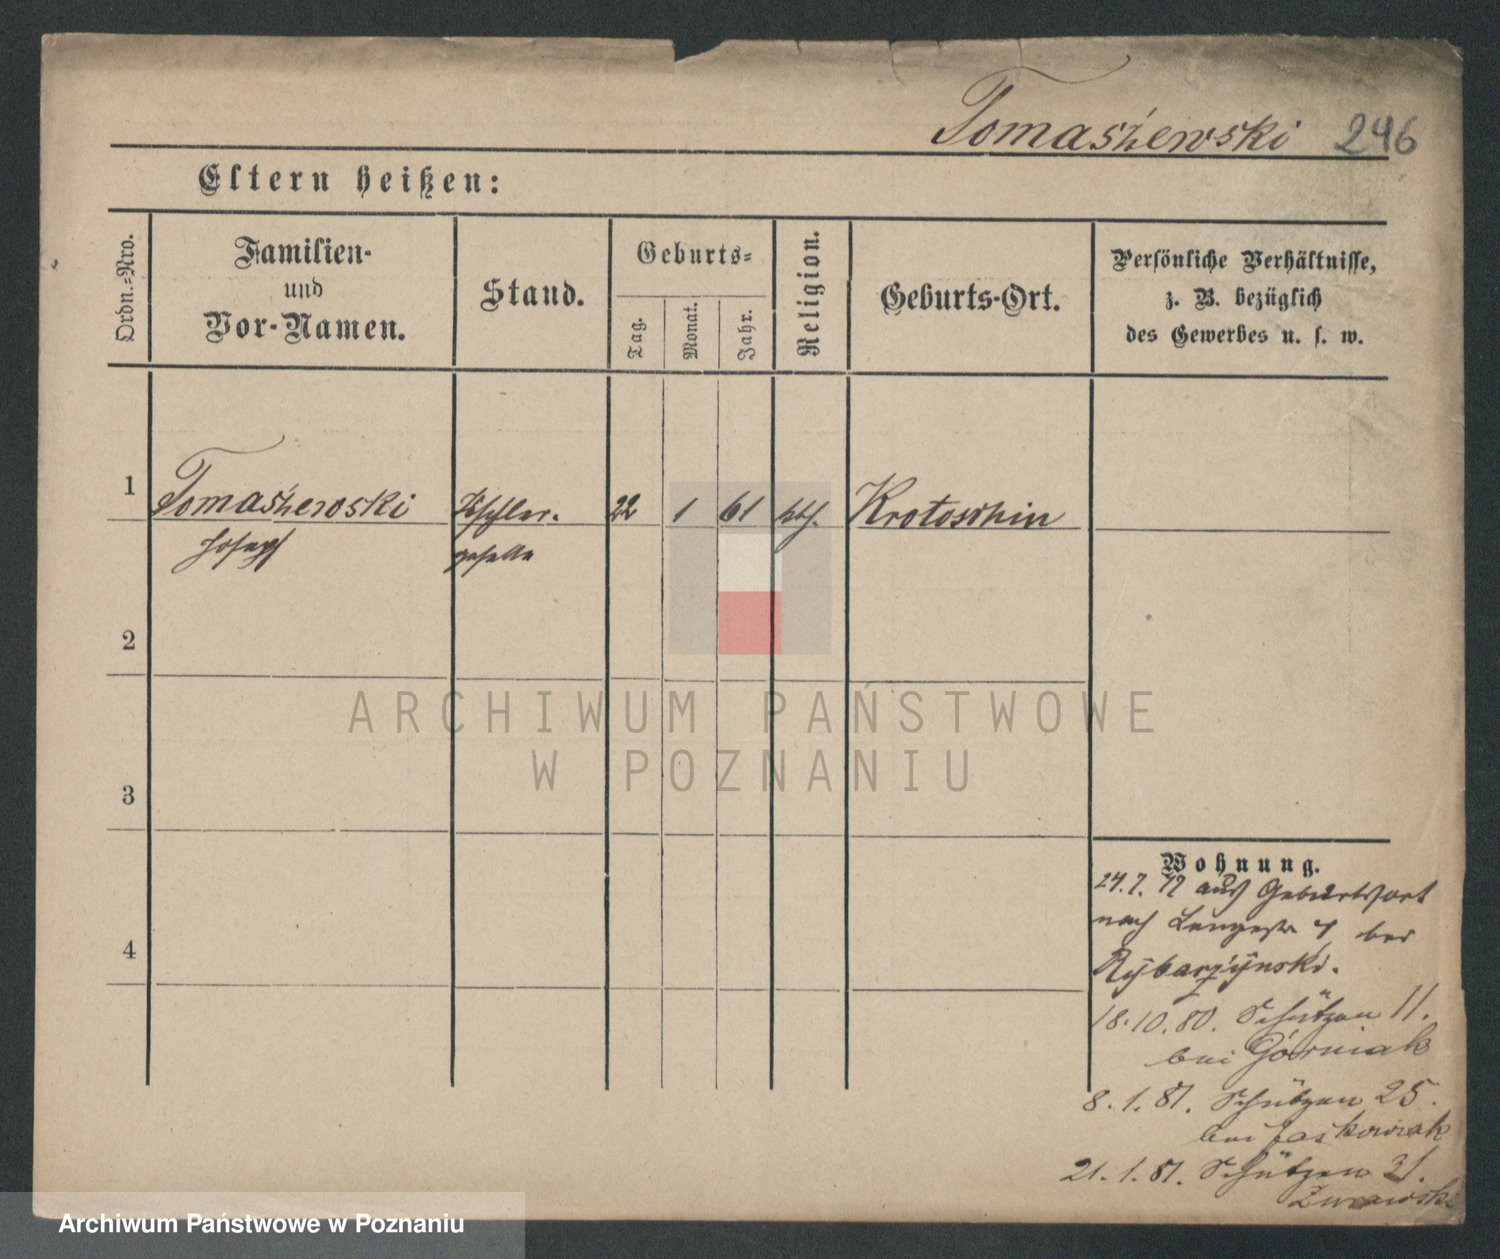 Tomaszewski 246
Eltern heißen:
Ordn.-Nro.
Familien-
und
Vor-Namen.
Stand.
Geburts-
Tag.
Monat.
Jahr.
Religion.
Geburts-Ort.
Persönliche Verhältnisse,
z. B. bezüglich
des Gewerbes u. s. w.
1
Tomaszewski Tischler- 22 1 61 kth. Krotoschin
Joseph geselle
2
3
4
Wohnung.
24.7. aus Geburtsort
nach Langestr 7 bei
Rybarzynski.
18.10.80. Schützen 11.
bei Górniak
8.1.81. Schützen 25.
bei Jaskowiak
21.1.81. Schützen 31.
Zurawski
ARCHIWUM PAŃSTWOWE
W POZNANIU
Archiwum Państwowe w Poznaniu